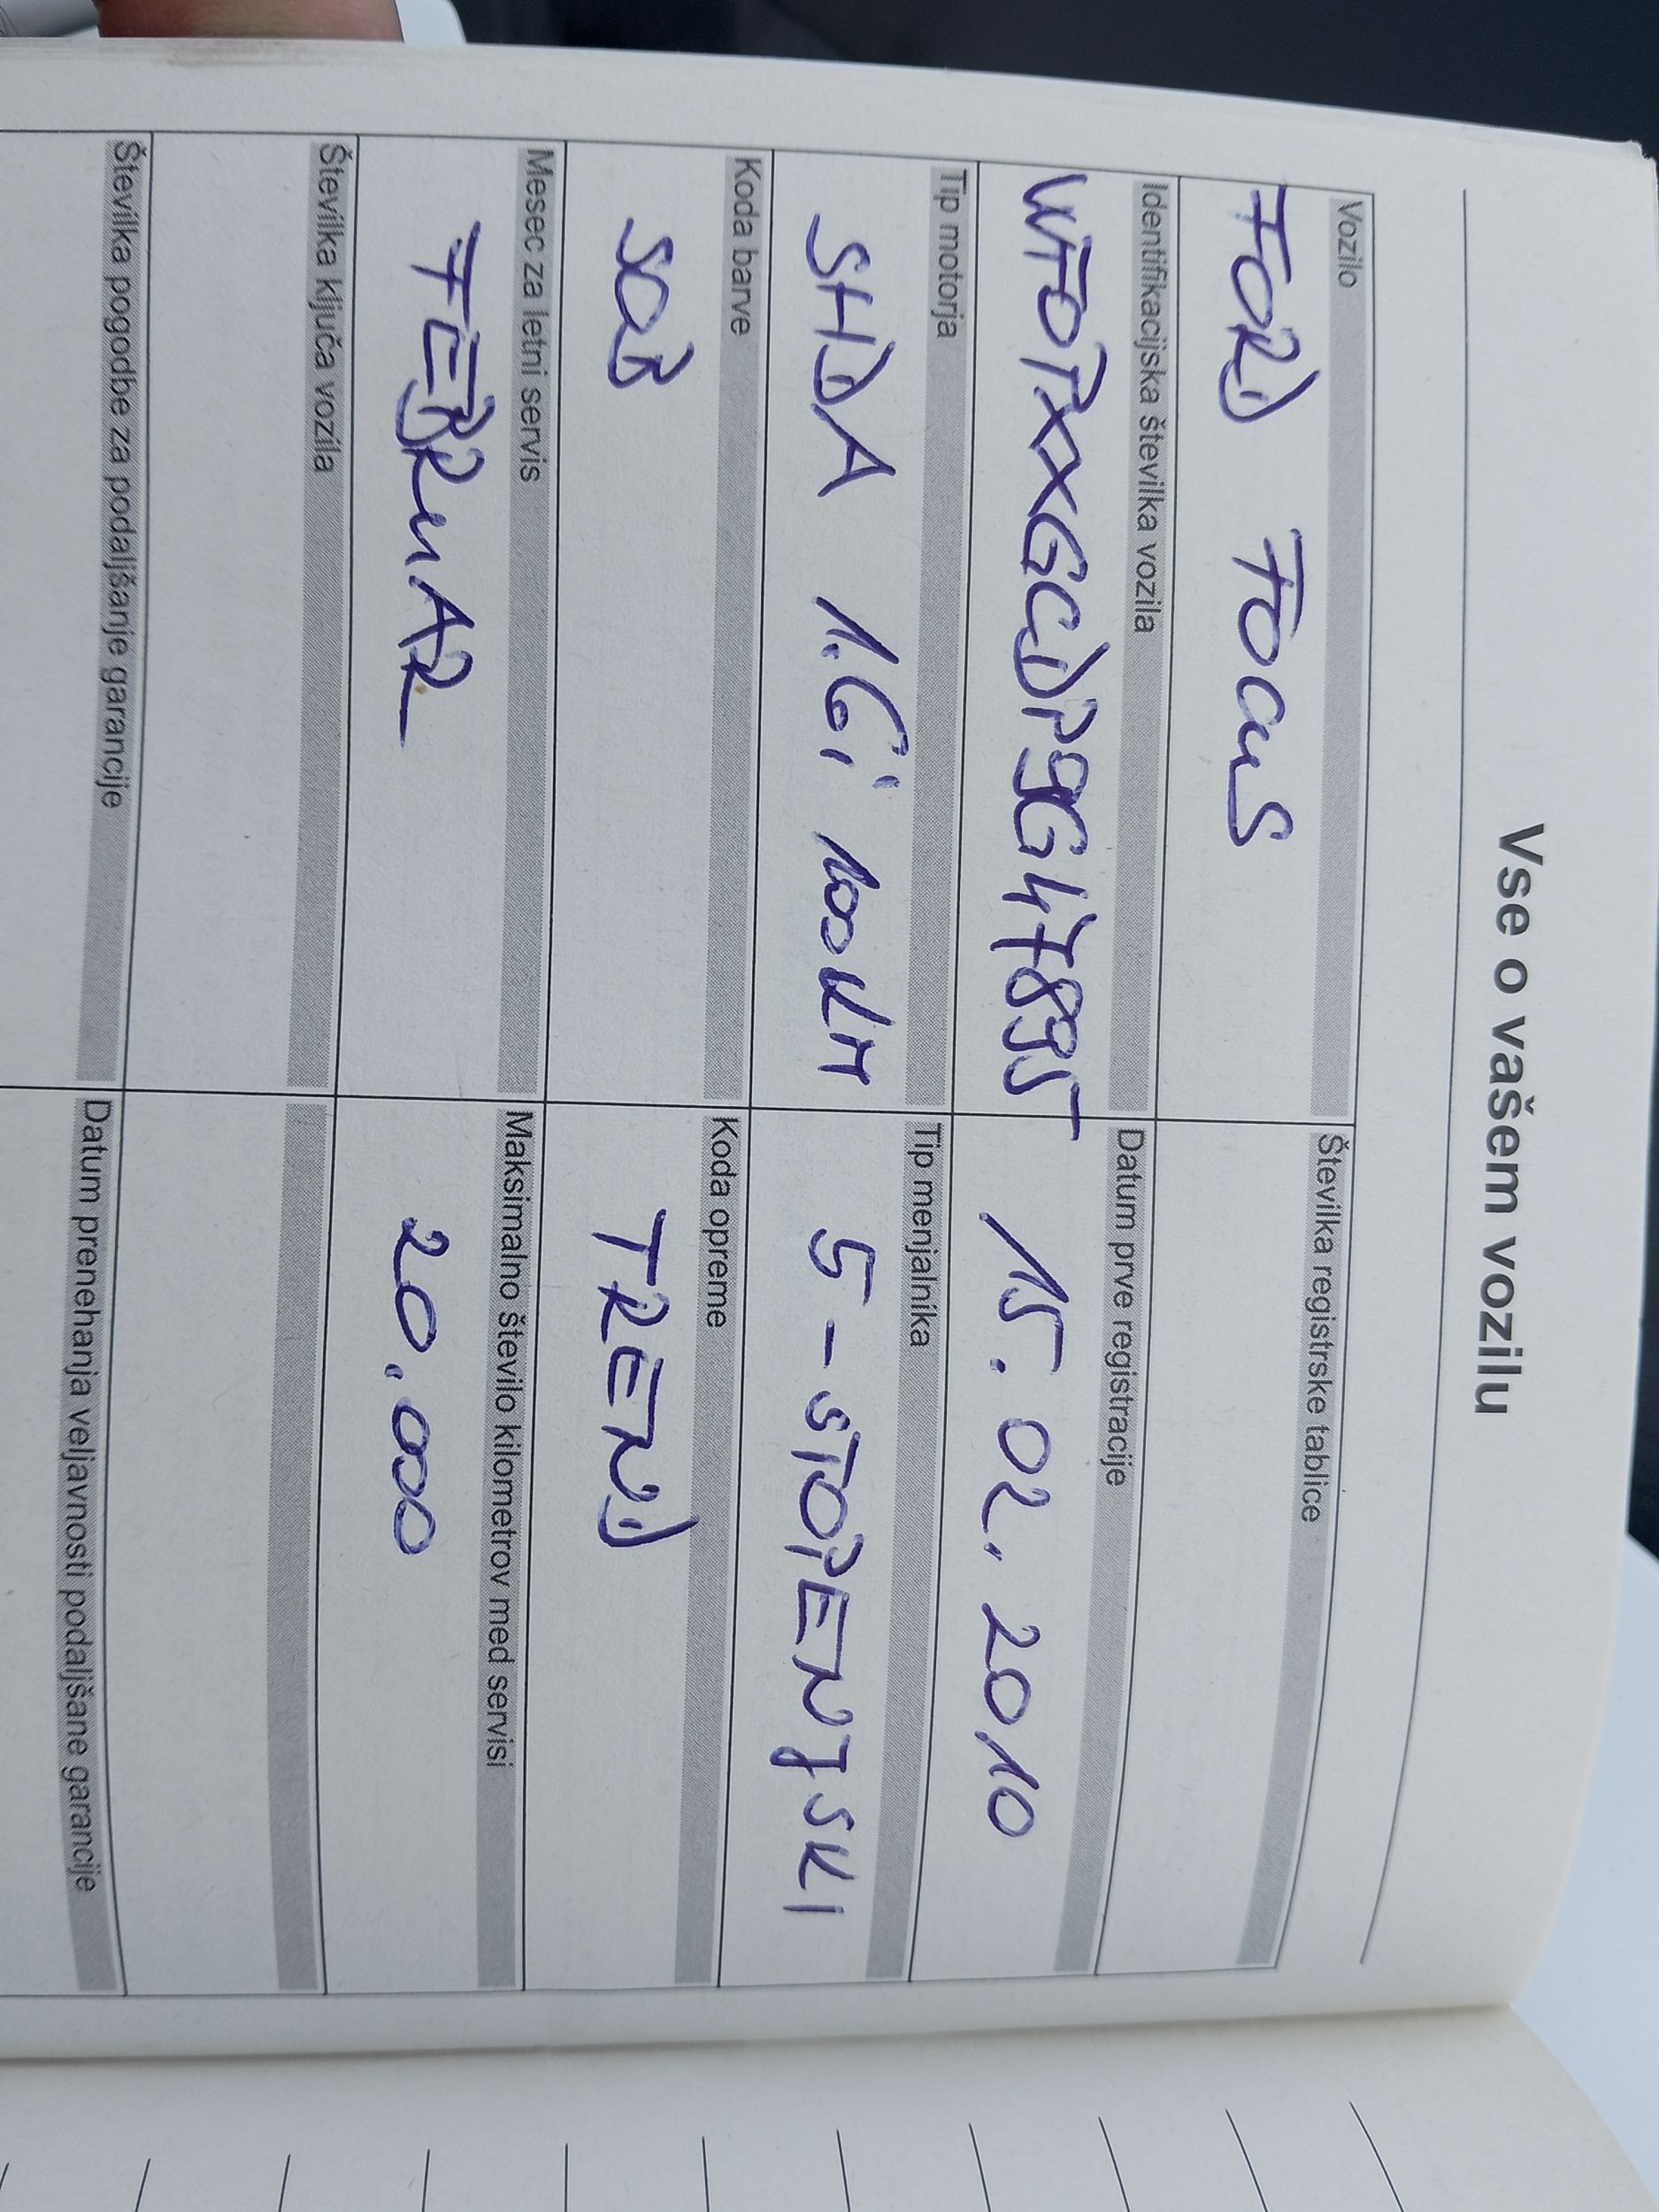 Vse o vašem vozilu
Vozilo
Številka registrske tablice
FORD FOCUS
Identifikacijska številka vozila
Datum prve registracije
WF0PXXGCDP9G47895
15.02.2010
Tip motorja
Tip menjalnika
SHDA 1.6i 100KM
5-STOPENJSKI
Koda barve
Koda opreme
SQB
TREND
Mesec za letni servis
Maksimalno število kilometrov med servisi
FEBRUAR
20.000
Številka ključa vozila
Številka pogodbe za podaljšanje garancije
Datum prenehanja veljavnosti podaljšane garancije